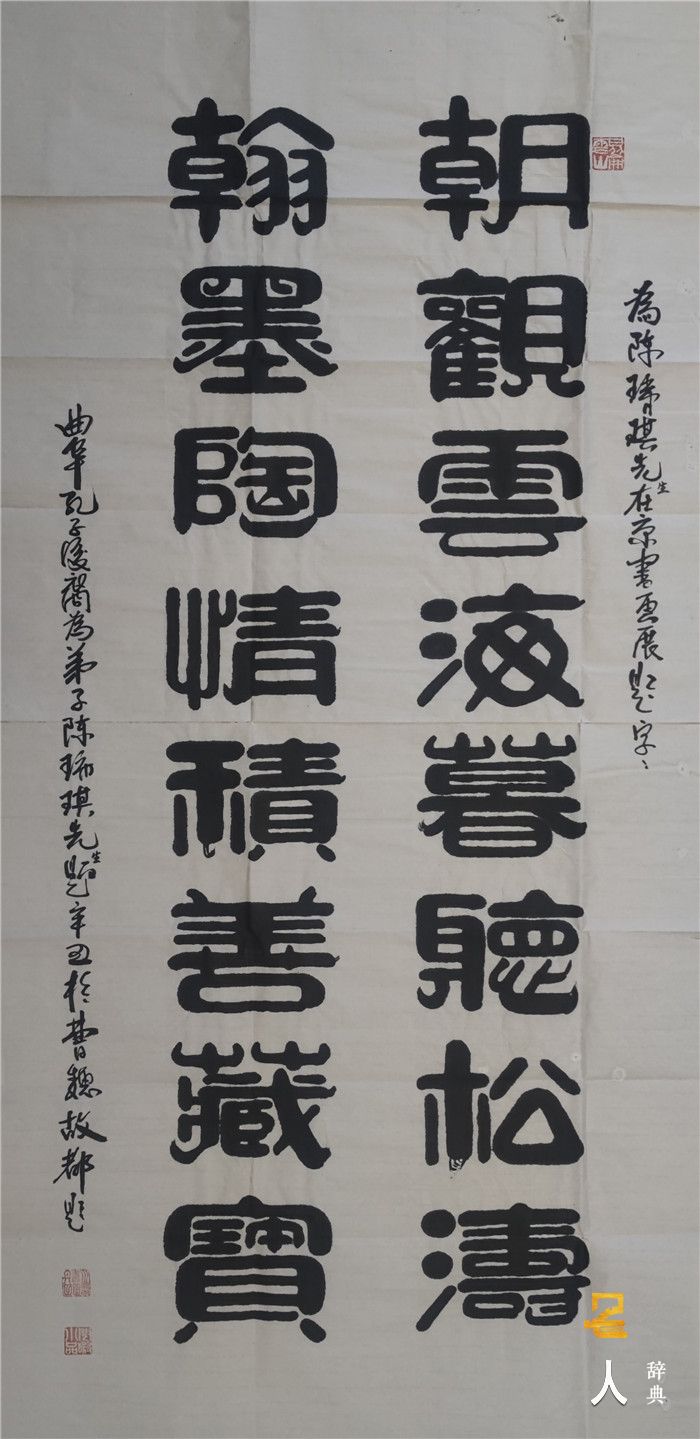 为陈琇琪先生在京書画展题字
朝觀雲海暮聽松濤
翰墨陶情積善藏寶
曲阜孔子後裔為弟子陈琇琪先生题辛丑於曹魏故都题
名人
辞典